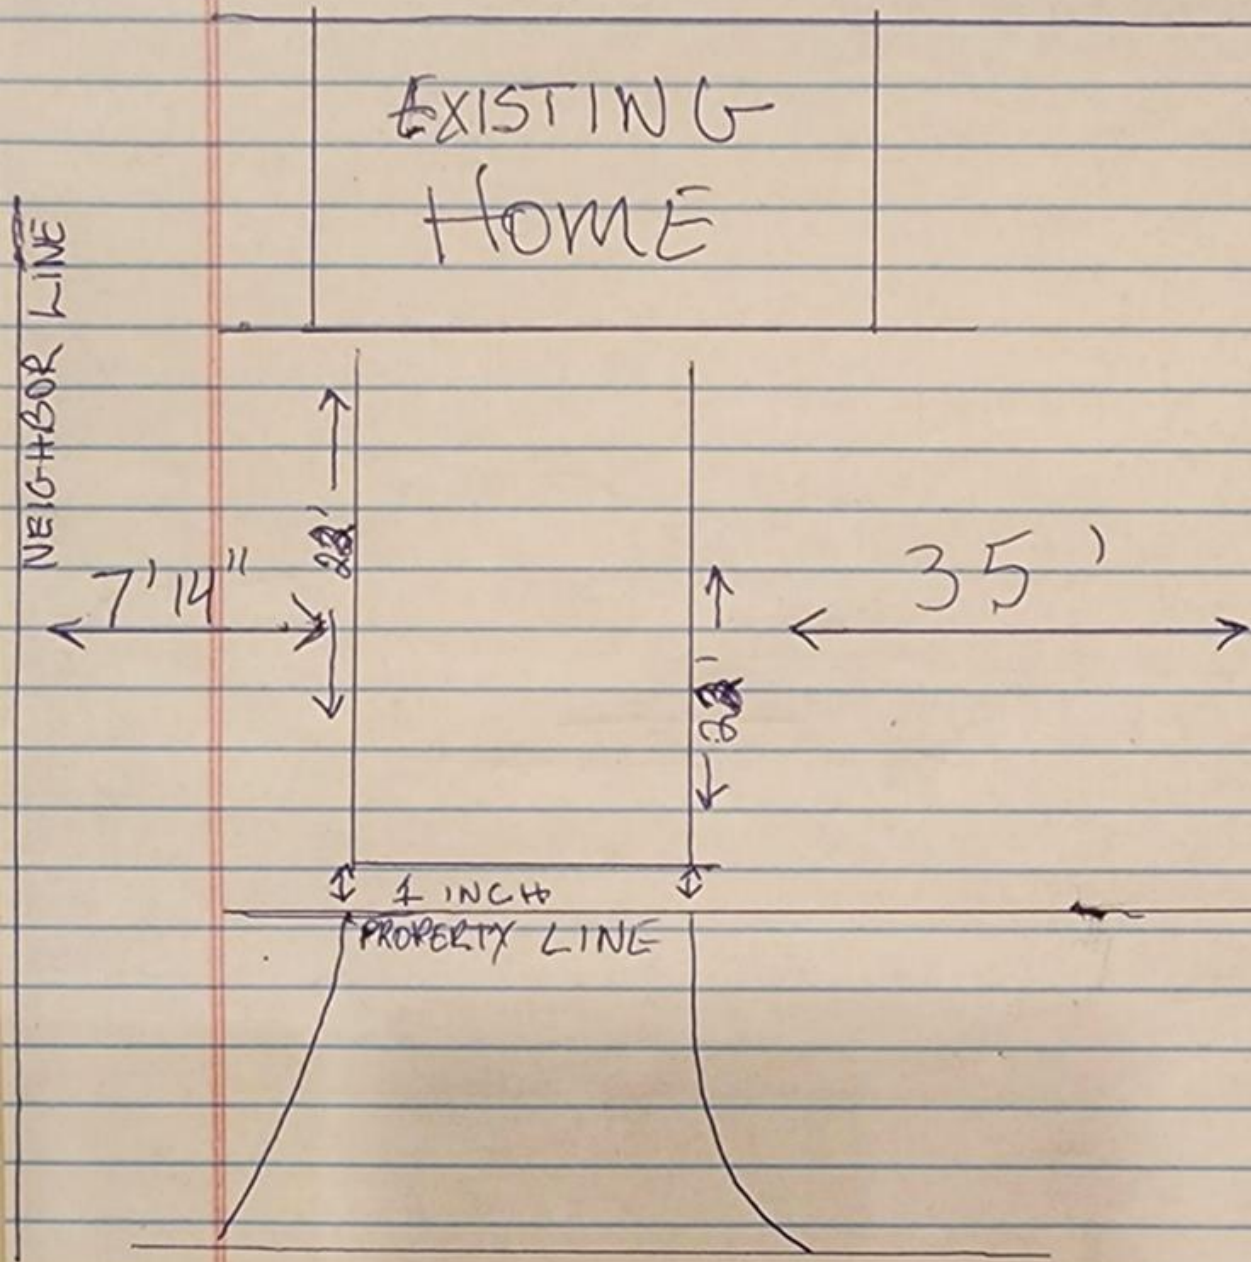 EXISTING
HOME
NEIGHBOR LINE
7'14"
35'
1 INCH
PROPERTY LINE